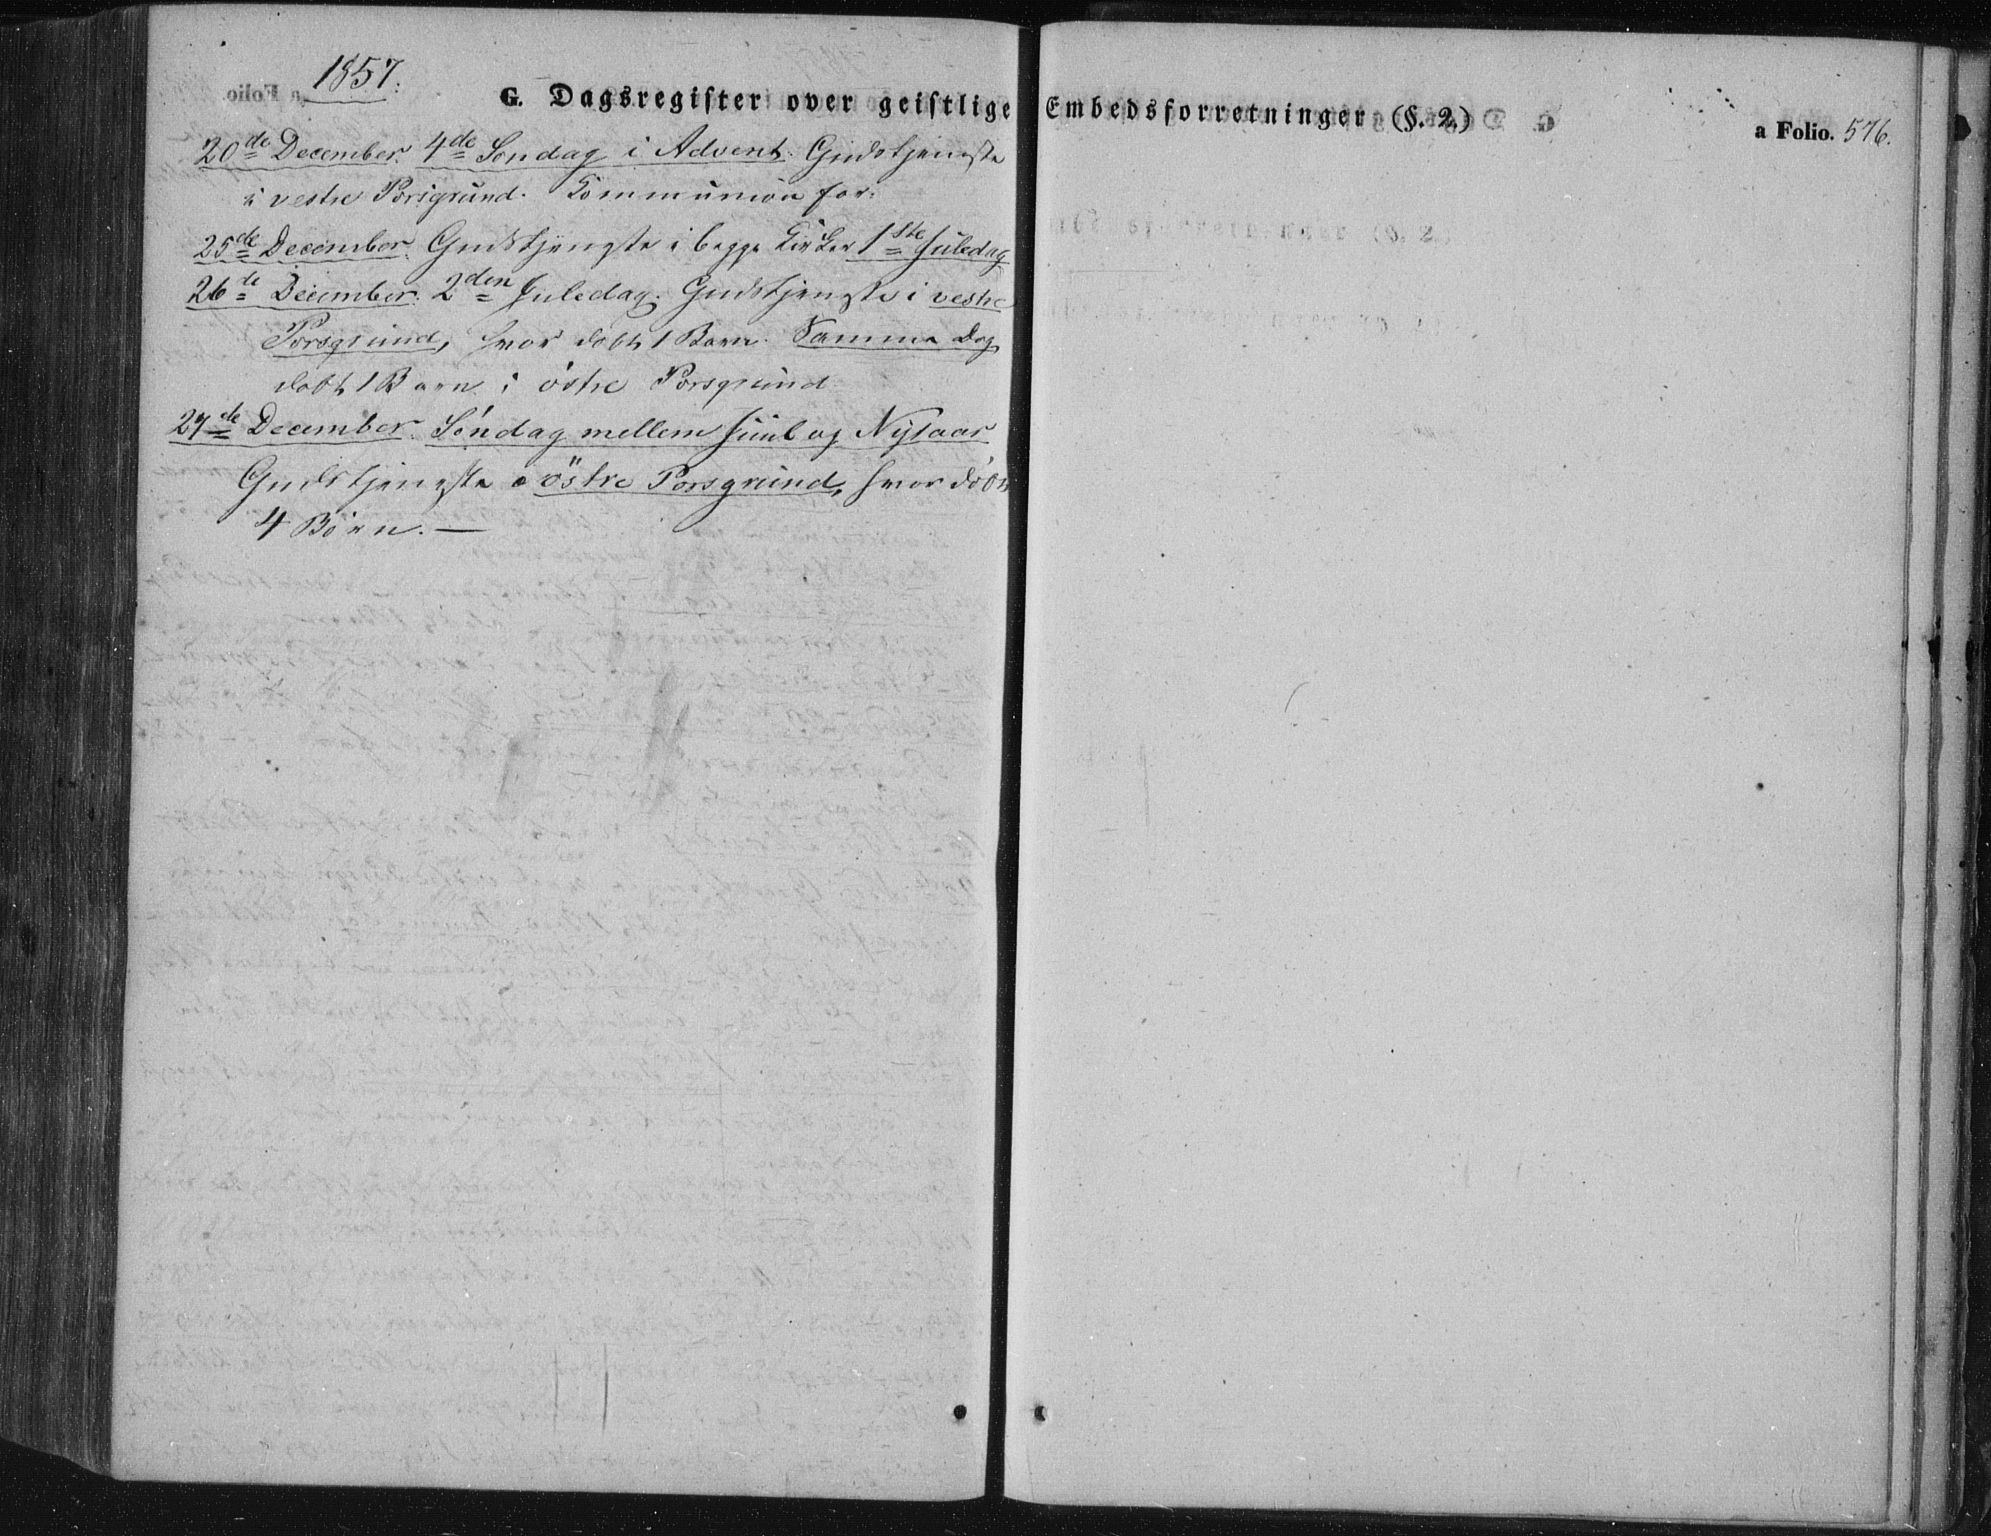 1857.
G. Dagsregister over geistlige Embedsforretninger (§. 2.)
a Folio. 576.
20de December. 4de Søndag i Advent. Gudstjeneste
i vestre Porsgrund. Kommunion for.
25de December. Gudstjeneste i begge Kirker 1ste Juledag
26de December. 2den Juledag. Gudstjeneste i vestre
Porsgrund, hvor døbt 1 Barn. Samme Dag
døbt 1 Barn i østre Porsgrund
27de December. Søndag mellem Juul og Nytaar
Gudstjeneste i østre Porsgrund, hvor døbt
4 Børn. —